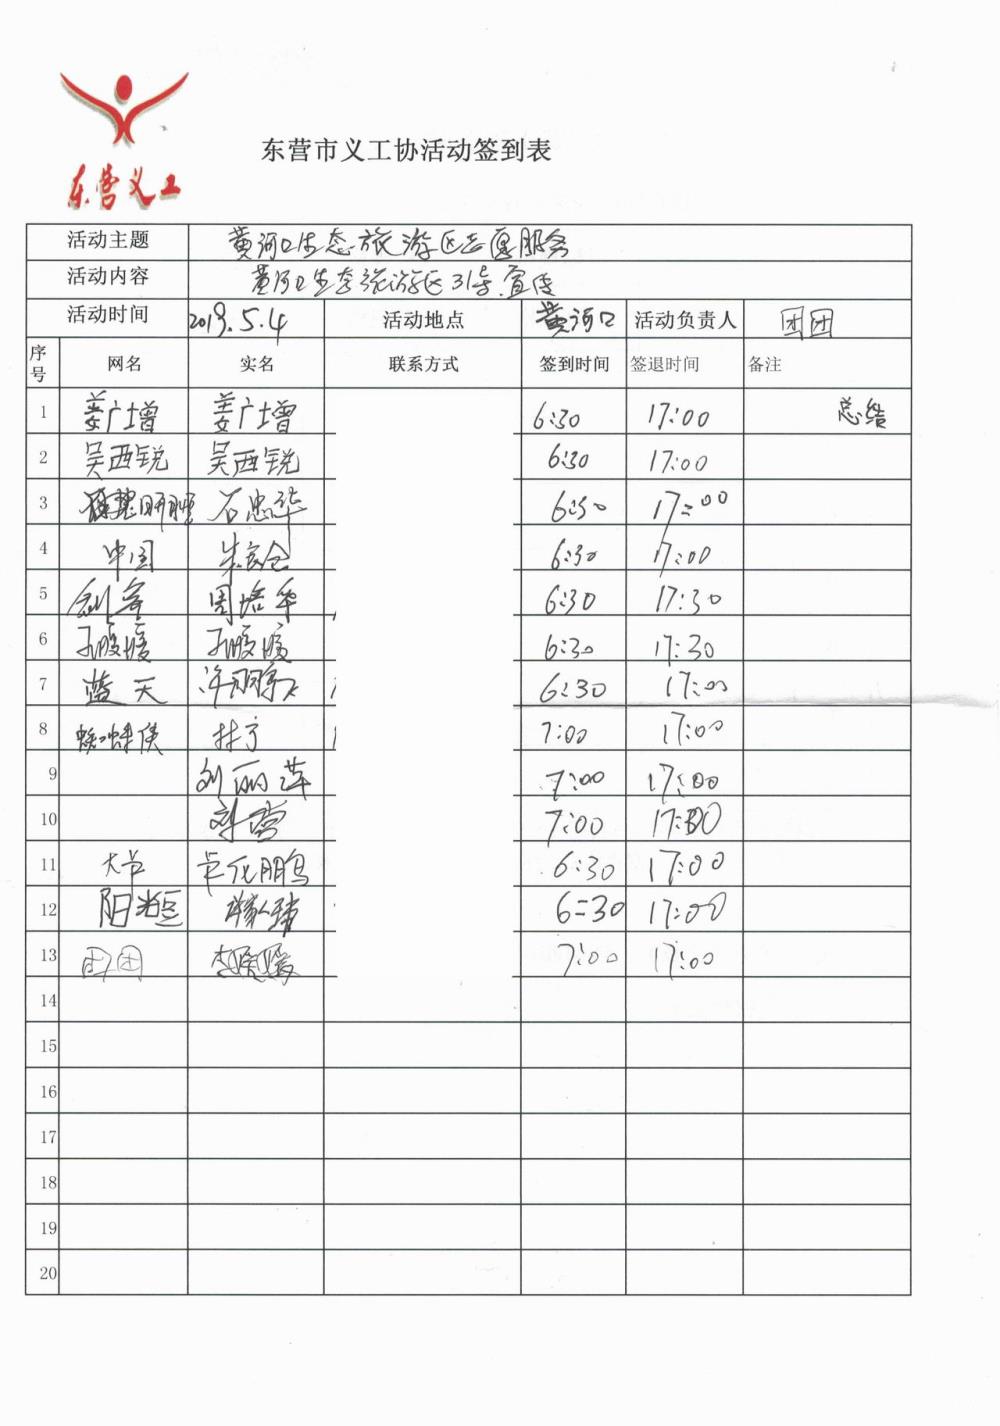 东营义工
东营市义工协活动签到表
活动主题 黄河口生态旅游区志愿服务
活动内容 黄河口生态旅游区引导.宣传
活动时间 2019.5.4 活动地点 黄河口 活动负责人 团团
序号 网名 实名 联系方式 签到时间 签退时间 备注
1 姜广增 姜广增 6:30 17:00 总结
2 吴西锐 吴西锐 6:30 17:00
3 石忠华 6:30 17:00
4 中国 6:30 17:00
5 剑客 周培华 6:30 17:30
6 孙媛媛 孙媛媛 6:30 17:30
7 蓝天 6:30 17:00
8 蜘蛛侠 林宁 7:00 17:00
9 刘丽萍 7:00 17:00
10 7:00 17:00
11 6:30 17:00
12 阳光 6:30 17:00
13 团团 李媛媛 7:00 17:00
14
15
16
17
18
19
20